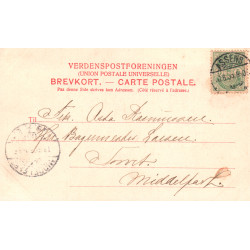 VERDENSPOSTFORENINGEN
(UNION POSTALE UNIVERSELLE)
BREVKORT. — CARTE POSTALE.
Paa denne Side skrives kun Adressen. (Côté réservé à l'adresse.)
ASSENS
Frk. Asta Rasmussen
Bagermester Larsen
Middelfart.